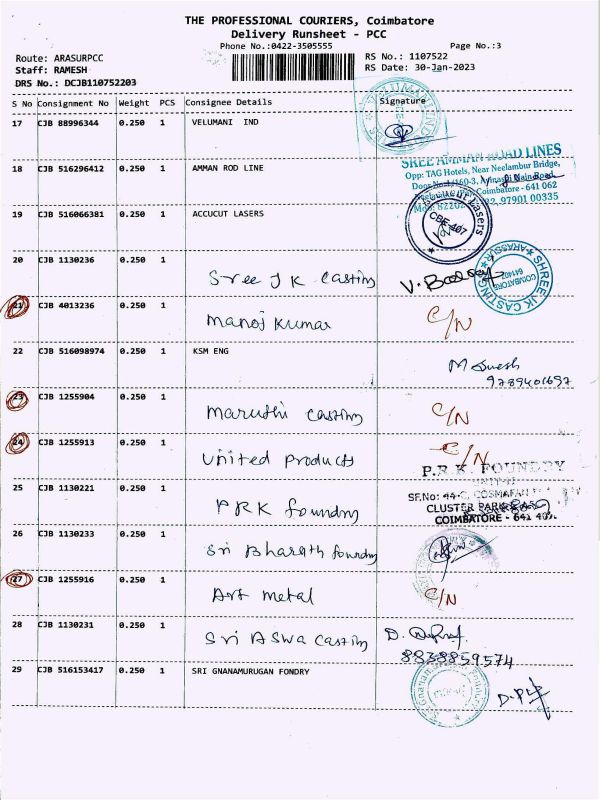 THE PROFESSIONAL COURIERS, Coimbatore
Delivery Runsheet - PCC
Phone No.:0422-3505555
Page No.:3
Route: ARASURPCC
RS No.: 1107522
Staff: RAMESH
RS Date: 30-Jan-2023
DRS No.: DCJB110752203
S No Consignment No Weight PCS Consignee Details Signature
17 CJB 88996344 0.250 1 VELUMANI IND
18 CJB 516296412 0.250 1 AMMAN ROD LINE
SREE AMMAN ROAD LINES
Opp: TAG Hotels, Near Neelambur Bridge,
Coimbatore - 641 062
97901 00335
19 CJB 516066381 0.250 1 ACCUCUT LASERS
Accucut Lasers
CBE-407
20 CJB 1130236 0.250 1
Sree JK Casting
SHREE JK CASTING
ARASUR
COIMBATORE
641407
21 CJB 4013236 0.250 1
Manoj Kumar C/N
22 CJB 516098974 0.250 1 KSM ENG
9789401697
23 CJB 1255904 0.250 1
Maruthi Casting C/N
24 CJB 1255913 0.250 1
United Products C/N
P.R.K. FOUNDRY
25 CJB 1130221 0.250 1
PRK foundry
SF.No: 44-C, COSMAFAN
CLUSTER PARK
COIMBATORE - 641 407.
26 CJB 1130233 0.250 1
Sri Bharath foundry
27 CJB 1255916 0.250 1
Art metal C/N
28 CJB 1130231 0.250 1
Sri Aswa Casting
8838859574
29 CJB 516153417 0.250 1 SRI GNANAMURUGAN FONDRY